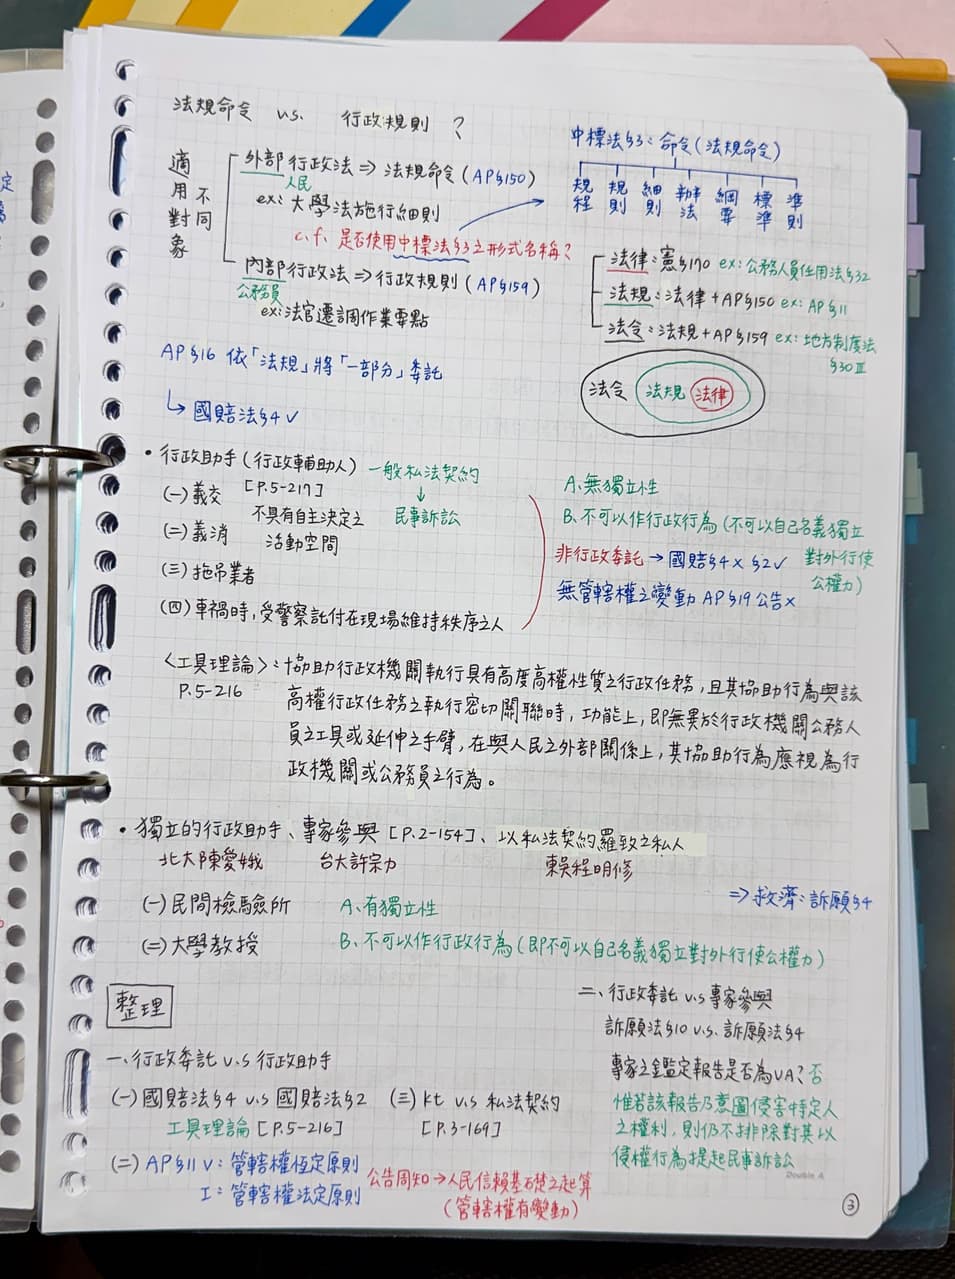 法規命令 v.s. 行政規則？
適用不同對象
外部行政法⇒法規命令(AP§150)
人民
ex: 大學法施行細則
c.f. 是否使用中標法§3之形式名稱？
內部行政法⇒行政規則(AP§159)
公務員
ex:法官遷調作業要點
中標法§3：命令(法規命令)
規程 規則 細則 辦法 綱要 標準 準則
法律：憲§170 ex:公務人員任用法§32
法規：法律+AP§150 ex: AP§11
法令：法規+AP§159 ex:地方制度法
§30Ⅲ
法令 法規 法律
AP§16 依「法規」將「一部分」委託
↳國賠法§4 ✓
• 行政助手(行政輔助人) 一般私法契約
↓
民事訴訟
[P.5-217]
(一)義交
不具有自主決定之
活動空間
(二)義消
(三)拖吊業者
(四)車禍時，受警察託付在現場維持秩序之人
A、無獨立性
B、不可以作行政行為(不可以自己名義獨立
對外行使
公權力)
非行政委託→國賠§4× §2✓
無管轄權之變動 AP§19公告×
〈工具理論〉：協助行政機關執行具有高度高權性質之行政任務，且其協助行為與該
P.5-216
高權行政任務之執行密切關聯時，功能上，即無異於行政機關公務人
員之工具或延伸之手臂，在與人民之外部關係上，其協助行為應視為行
政機關或公務員之行為。
• 獨立的行政助手、專家參與[P.2-154]、以私法契約羅致之私人
北大陳愛娥 台大許宗力 吳程明修
⇒救濟：訴願§4
(一)民間檢驗所
A、有獨立性
(二)大學教授
B、不可以作行政行為(即不可以自己名義獨立對外行使公權力)
整理
一、行政委託 v.s 行政助手
(一)國賠法§4 v.s 國賠法§2
工具理論[P.5-216]
(二)AP§11 V：管轄權恆定原則
I：管轄權法定原則
(三)kt v.s 私法契約
[P.3-169]
公告周知→人民信賴基礎之起算
(管轄權有變動)
二、行政委託 v.s 專家參與
訴願法§10 v.s. 訴願法§4
專家之鑑定報告是否為VA？否
惟若該報告乃意圖侵害特定人
之權利，則仍不排除對其以
侵權行為提起民事訴訟
Double A
③